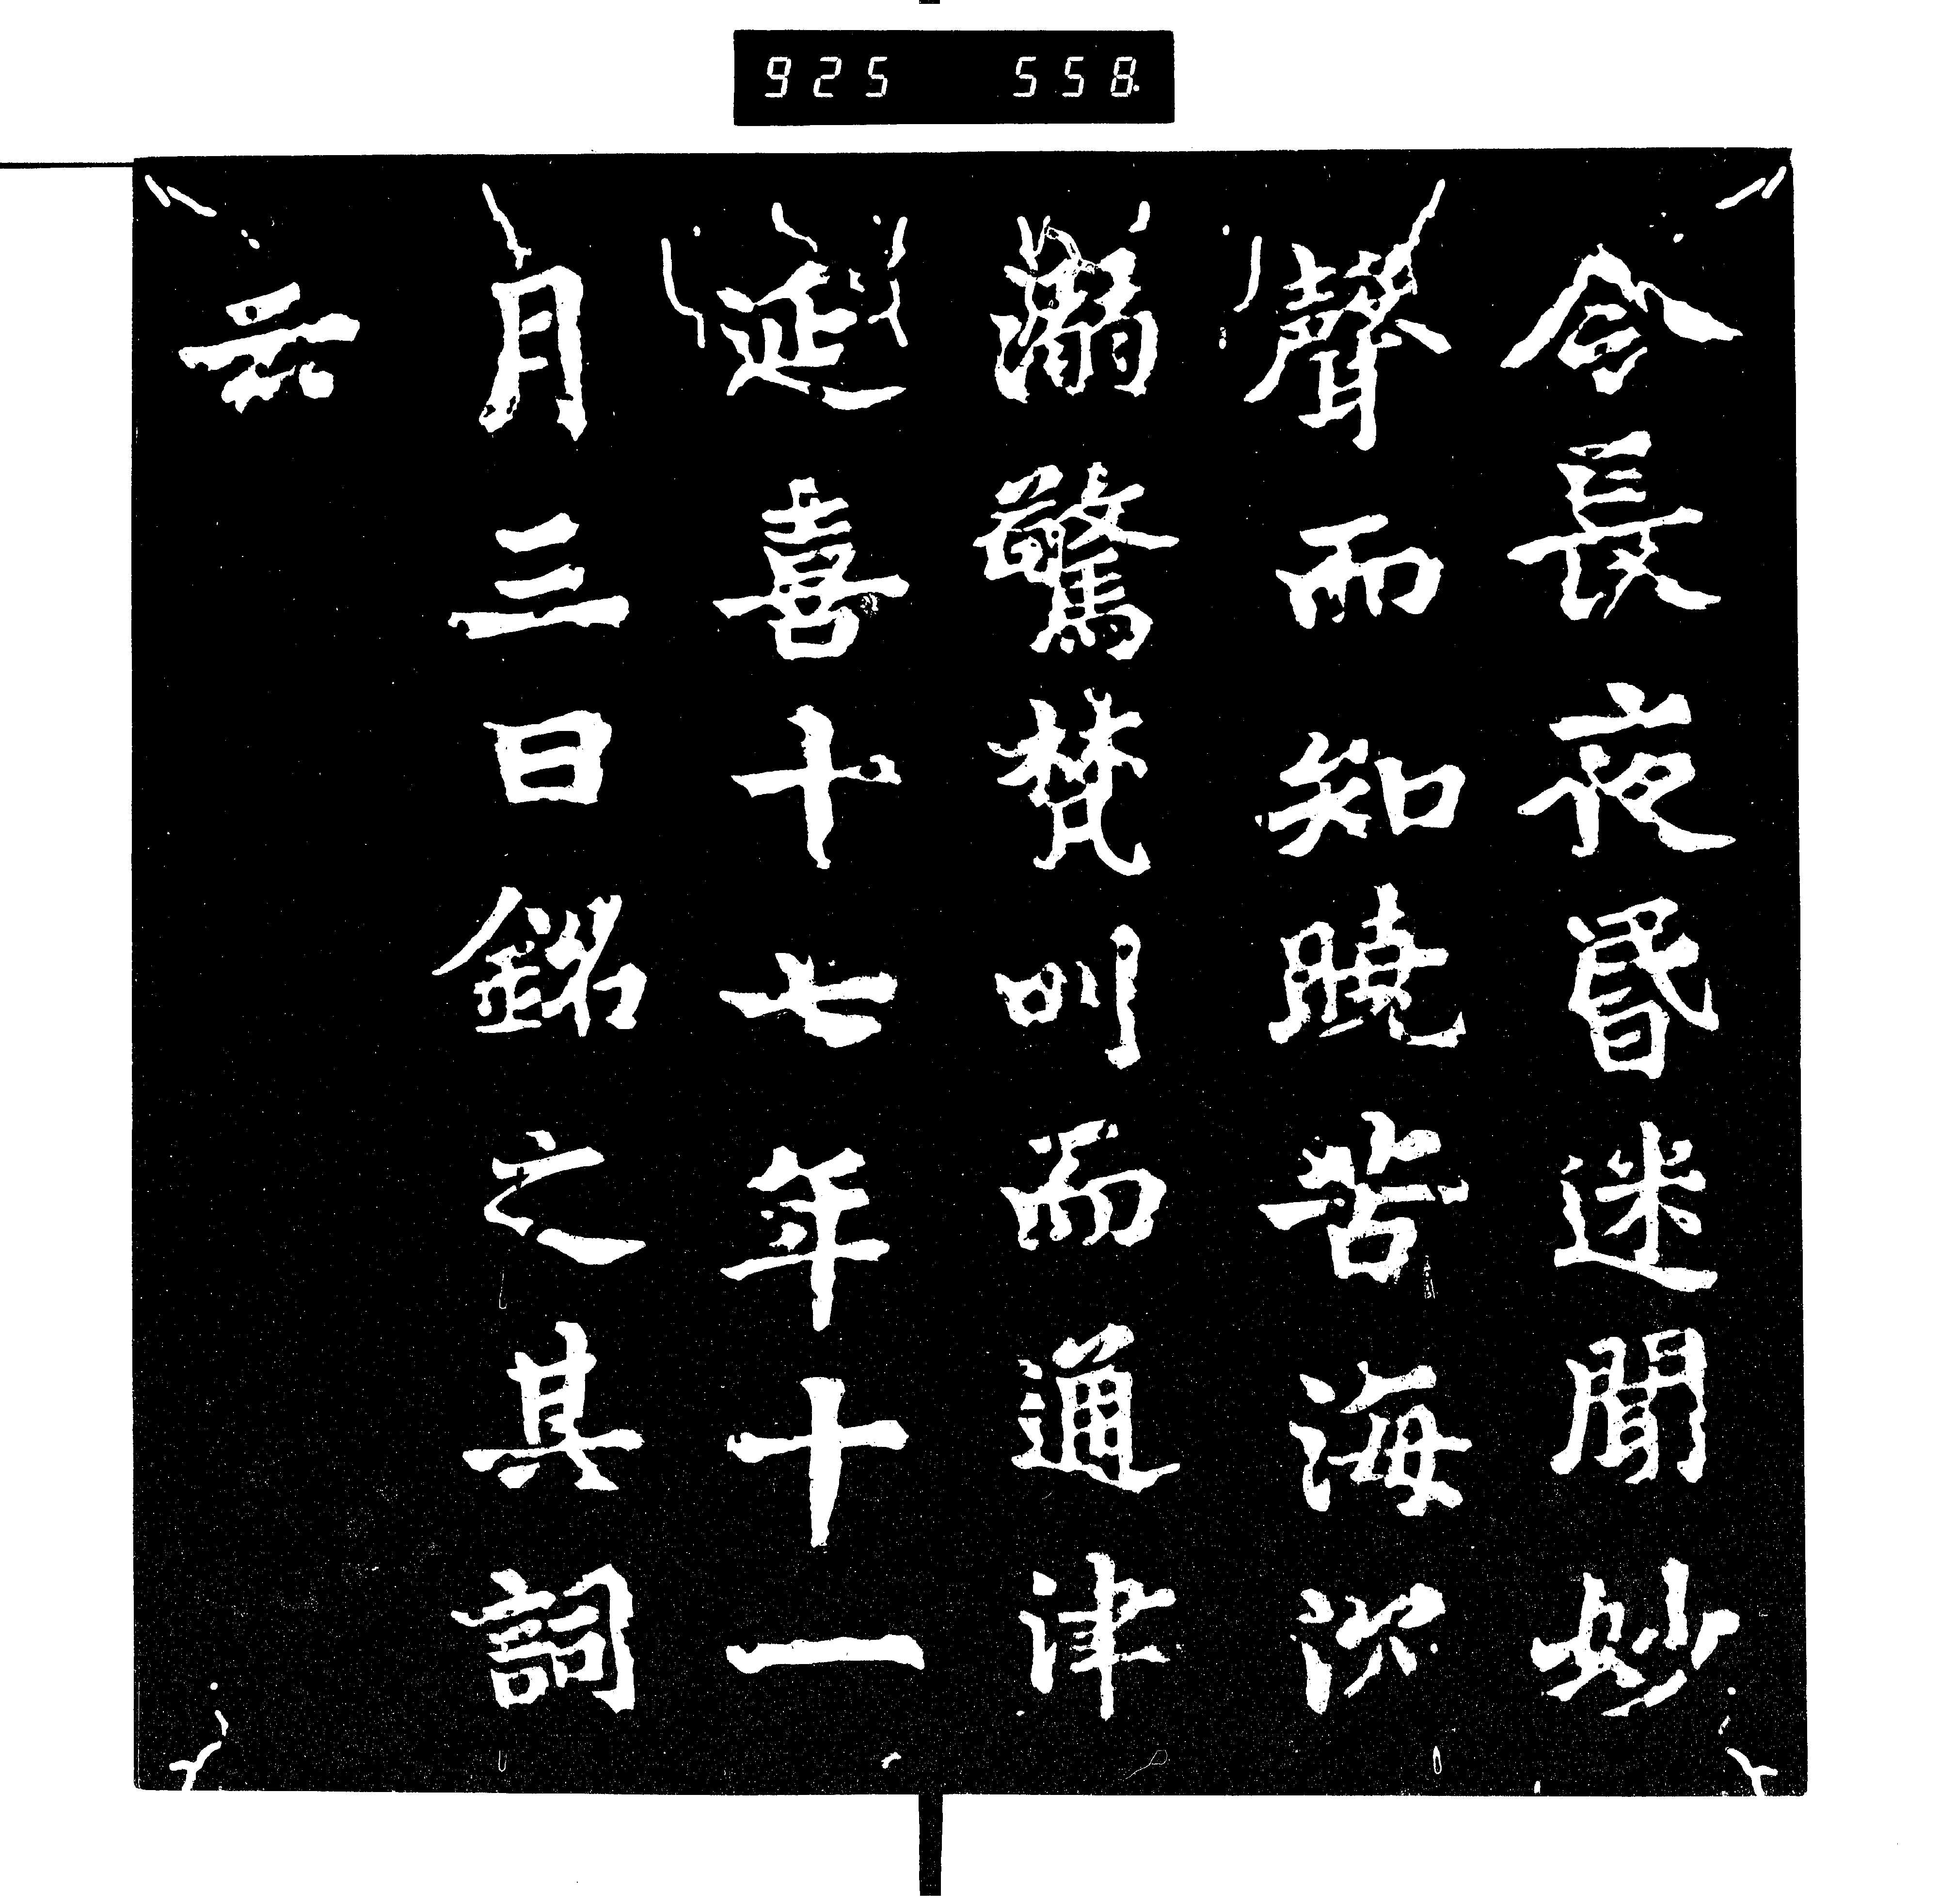 925 558.
令長夜昬迷聞妙
聲而知曉苦海沉
溺驚梵叫而通津
延喜十七年十一
月三日銘之其詞
云